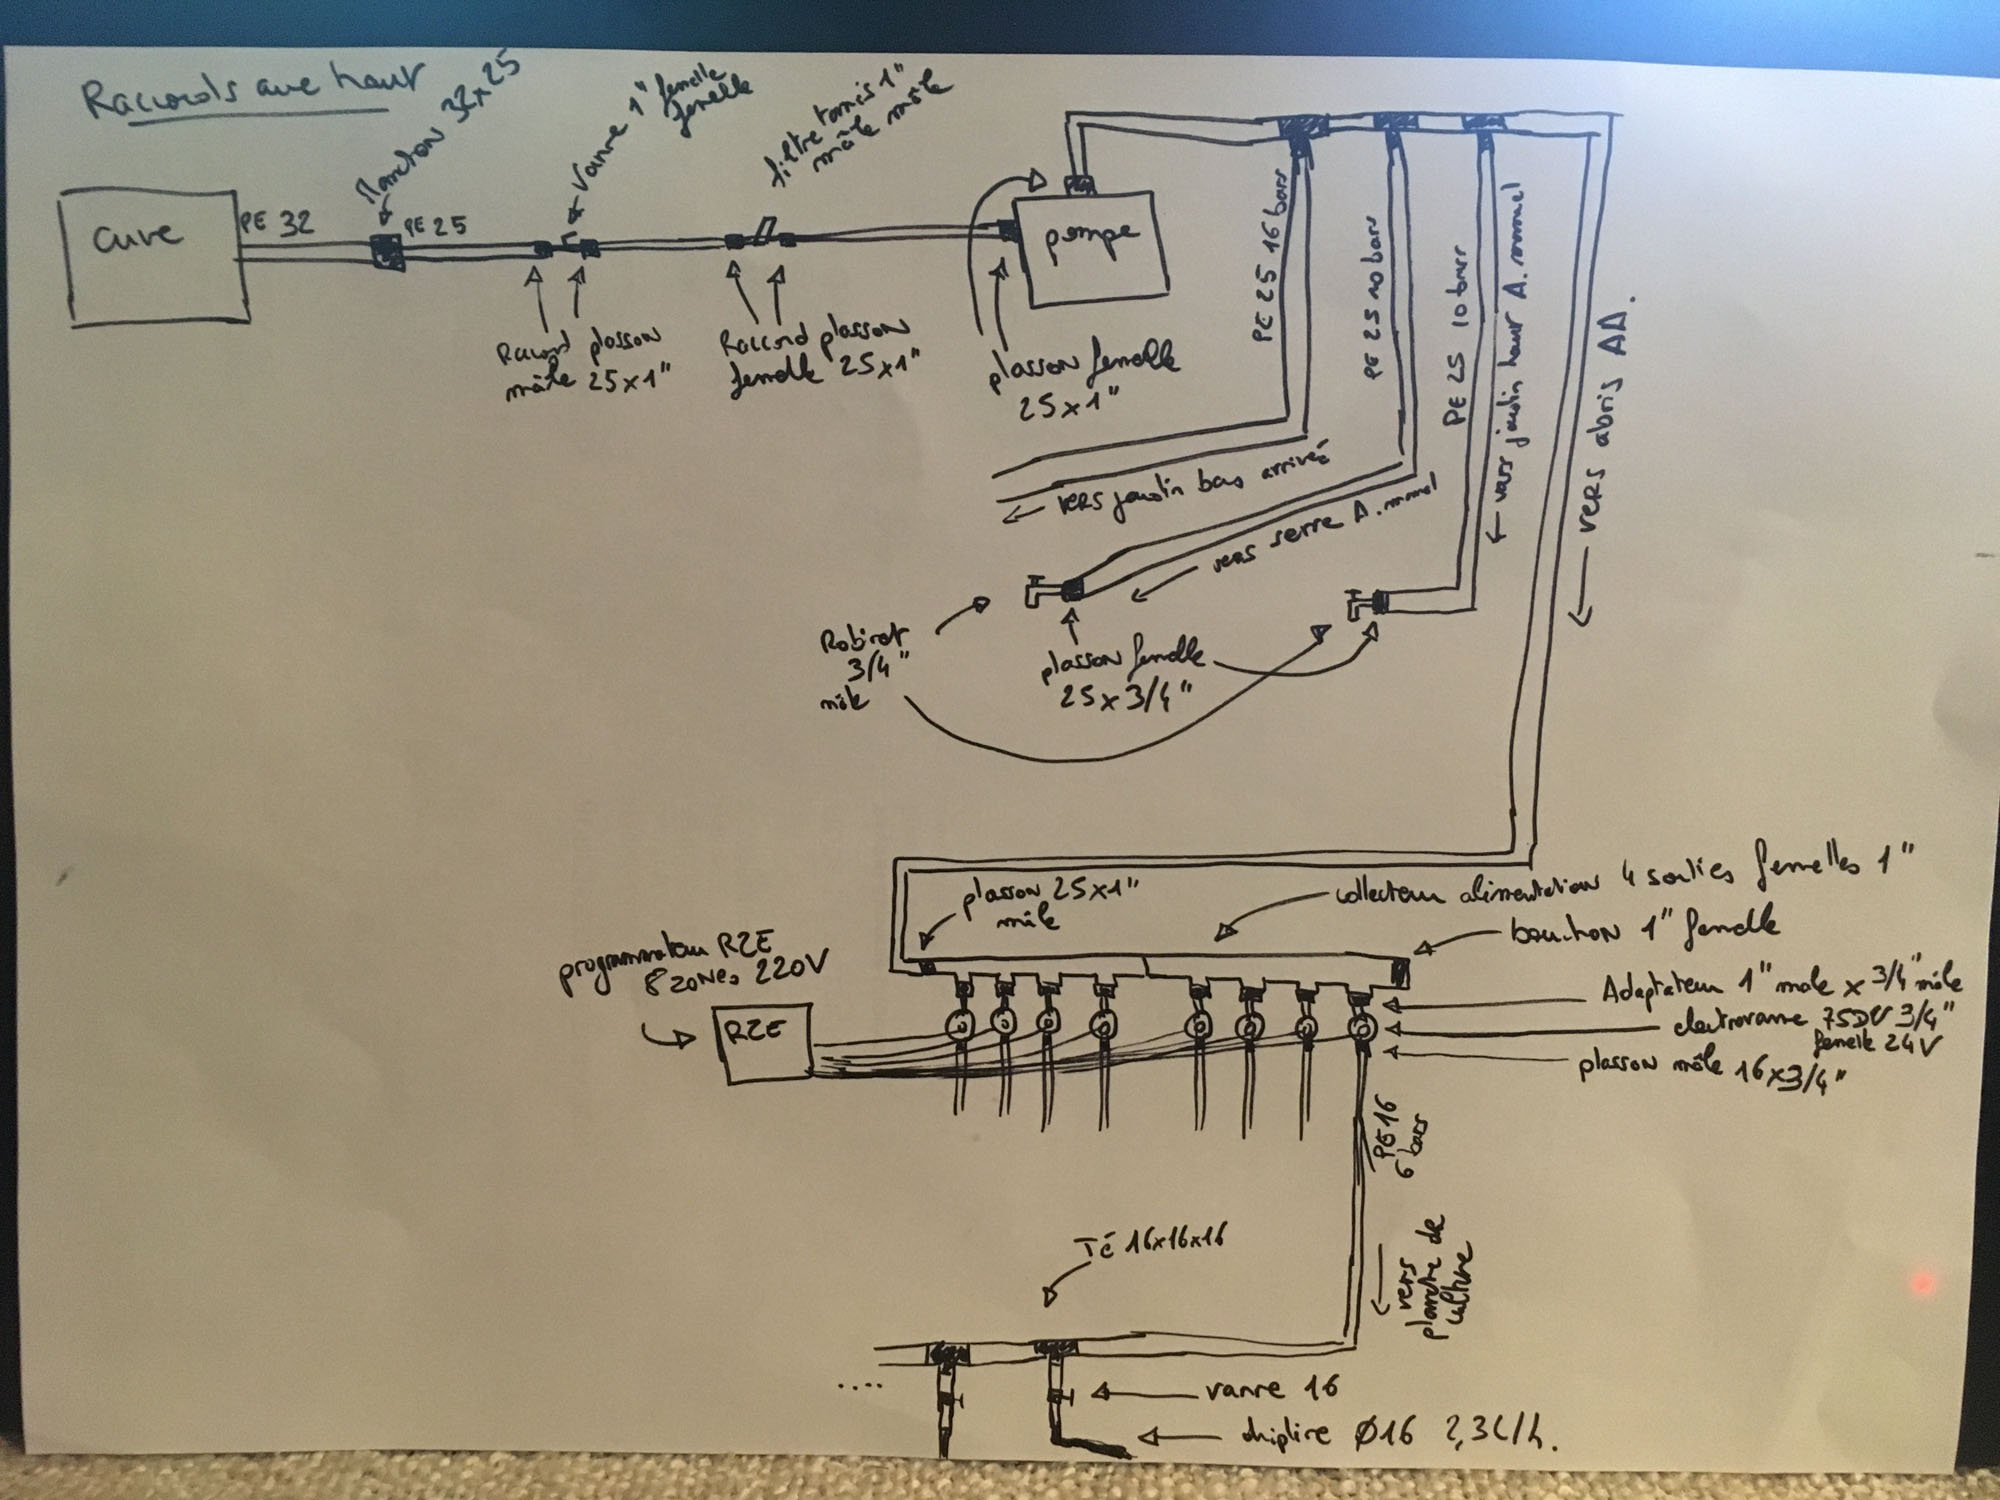 Raccords cuve haut
Manchon 32x25
vanne 1" femelle
femelle
filtre tamis 1"
mâle mâle
cuve
PE 32
PE 25
pompe
Raccord plasson
mâle 25x1"
Raccord plasson
femelle 25x1"
plasson femelle
25x1"
PE 25 16 bars
PE 25 10 bars
PE 25 10 bars
vers jardin haut A.
vers abris AA.
vers jardin bas arrivée
vers serre A.
Robinet
3/4"
mâle
plasson femelle
25x3/4"
plasson 25x1"
mâle
collecteur alimentation 4 sorties femelles 1"
bouchon 1" femelle
programmateur RZE
8 zones 220V
RZE
Adaptateur 1" male x 3/4" mâle
electrovanne 75DV 3/4"
femelle 24V
plasson mâle 16x3/4"
PE 16
6 bars
vers
planche de
culture
Té 16x16x16
....
vanne 16
Ø16 2,3L/h.